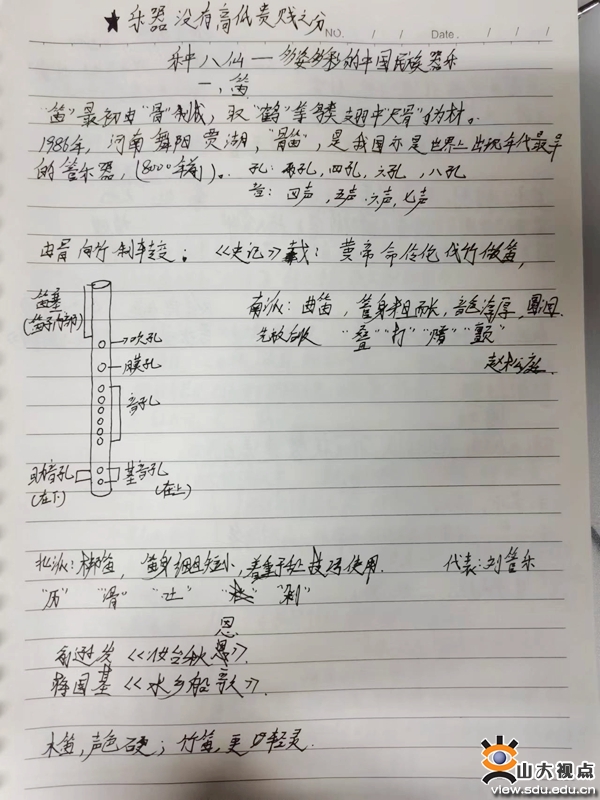 ★ 乐器没有高低贵贱之分
NO.
Date
乐中八仙—多姿多彩的中国民族器乐
一，笛
"笛"最初由"骨"制成，取"鹤"等禽类翅中"尺骨"为材。
1986年，河南舞阳贾湖，"骨笛"，是我国亦是世界上出现年代最早
的管乐器，(8000年前)。
孔：两孔，四孔，六孔，八孔
音：四声，五声，六声，七声
由骨向竹制转变：《史记》载：黄帝命伶伦伐竹做笛，
笛塞
(笛子内部)
吹孔
膜孔
音孔
助音孔
(左下)
基音孔
(左上)
南派：曲笛，管身粗而长，音色淳厚，圆润。
先放后收 "叠""打""赠""颤"
赵松庭
北派：梆笛，笛身细且短小，着重于技巧使用. 代表：刘管乐
"历""滑""吐" "剁"
《妆台秋思》.
恩
蒋国基《水乡船歌》.
木笛，声色硬；竹笛，更轻灵.
山大视点
view.sdu.edu.cn